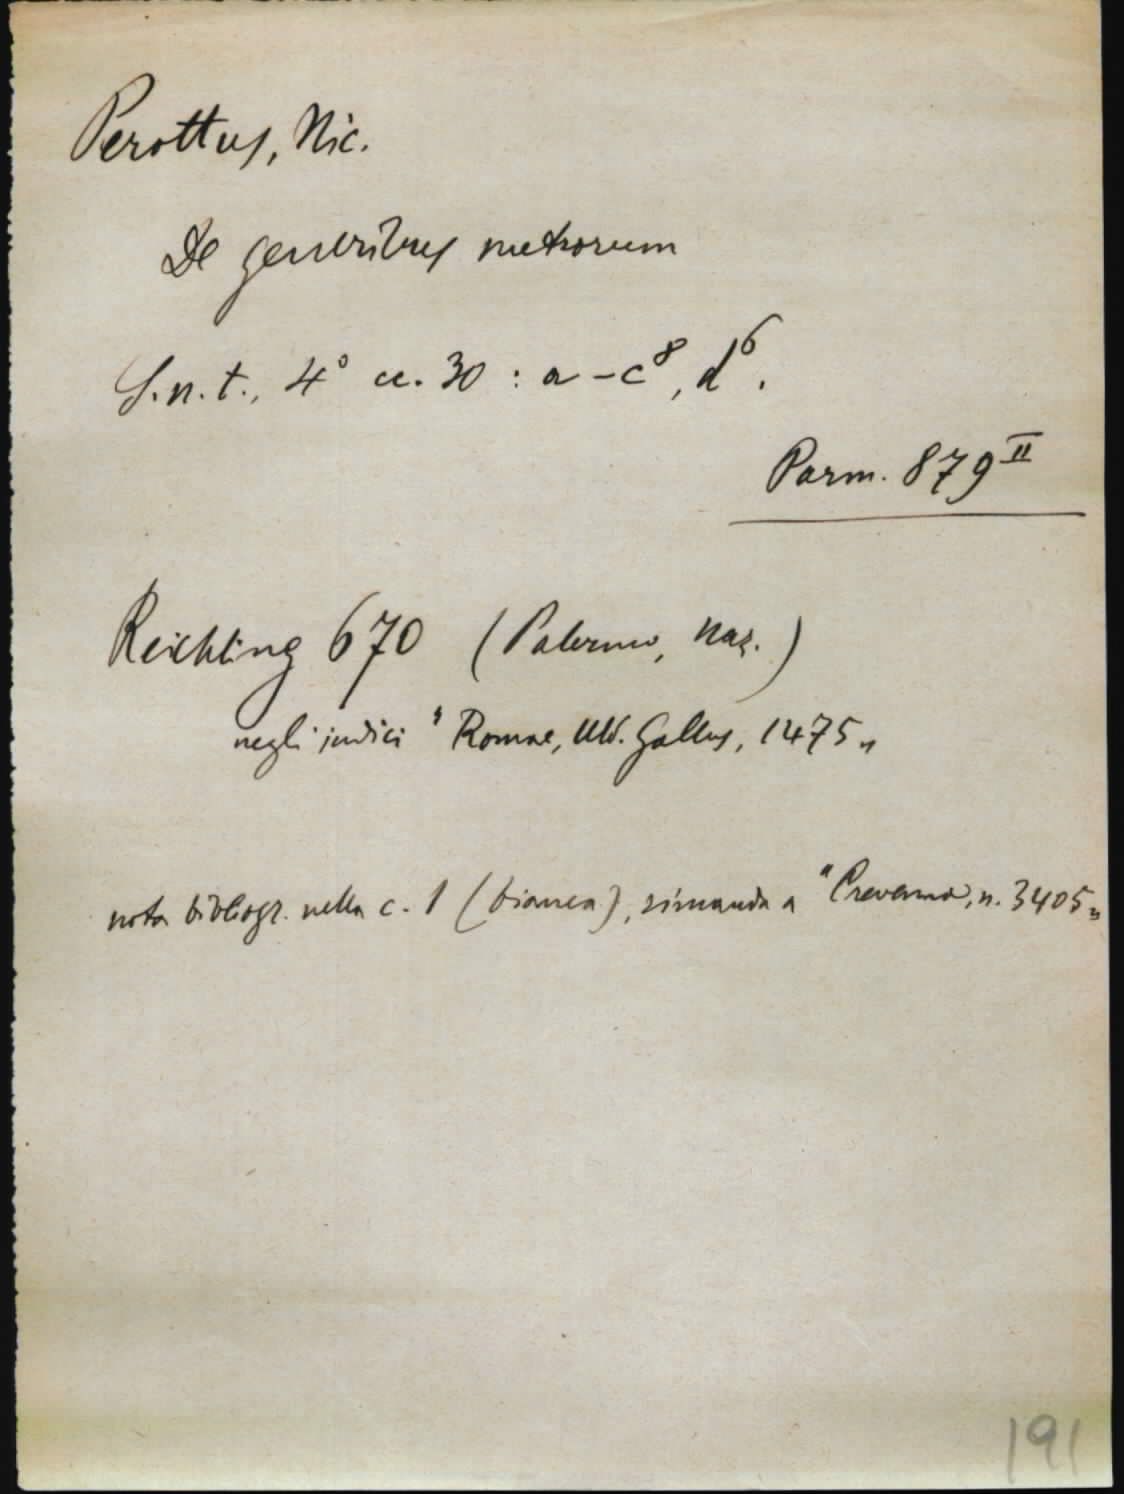 Perottus, Nic.
De generibus metrorum
S.n.t., 4° cc. 30 : a-c⁸, d⁶.
Parm. 879ᴵᴵ
Reichling 670 (Palermo, Naz.)
negli indici "Romae, Uld. Gallus, 1475"
nota bibliogr. nella c. 1 (bianca), rimanda a "Crevenna, n. 3405"
191